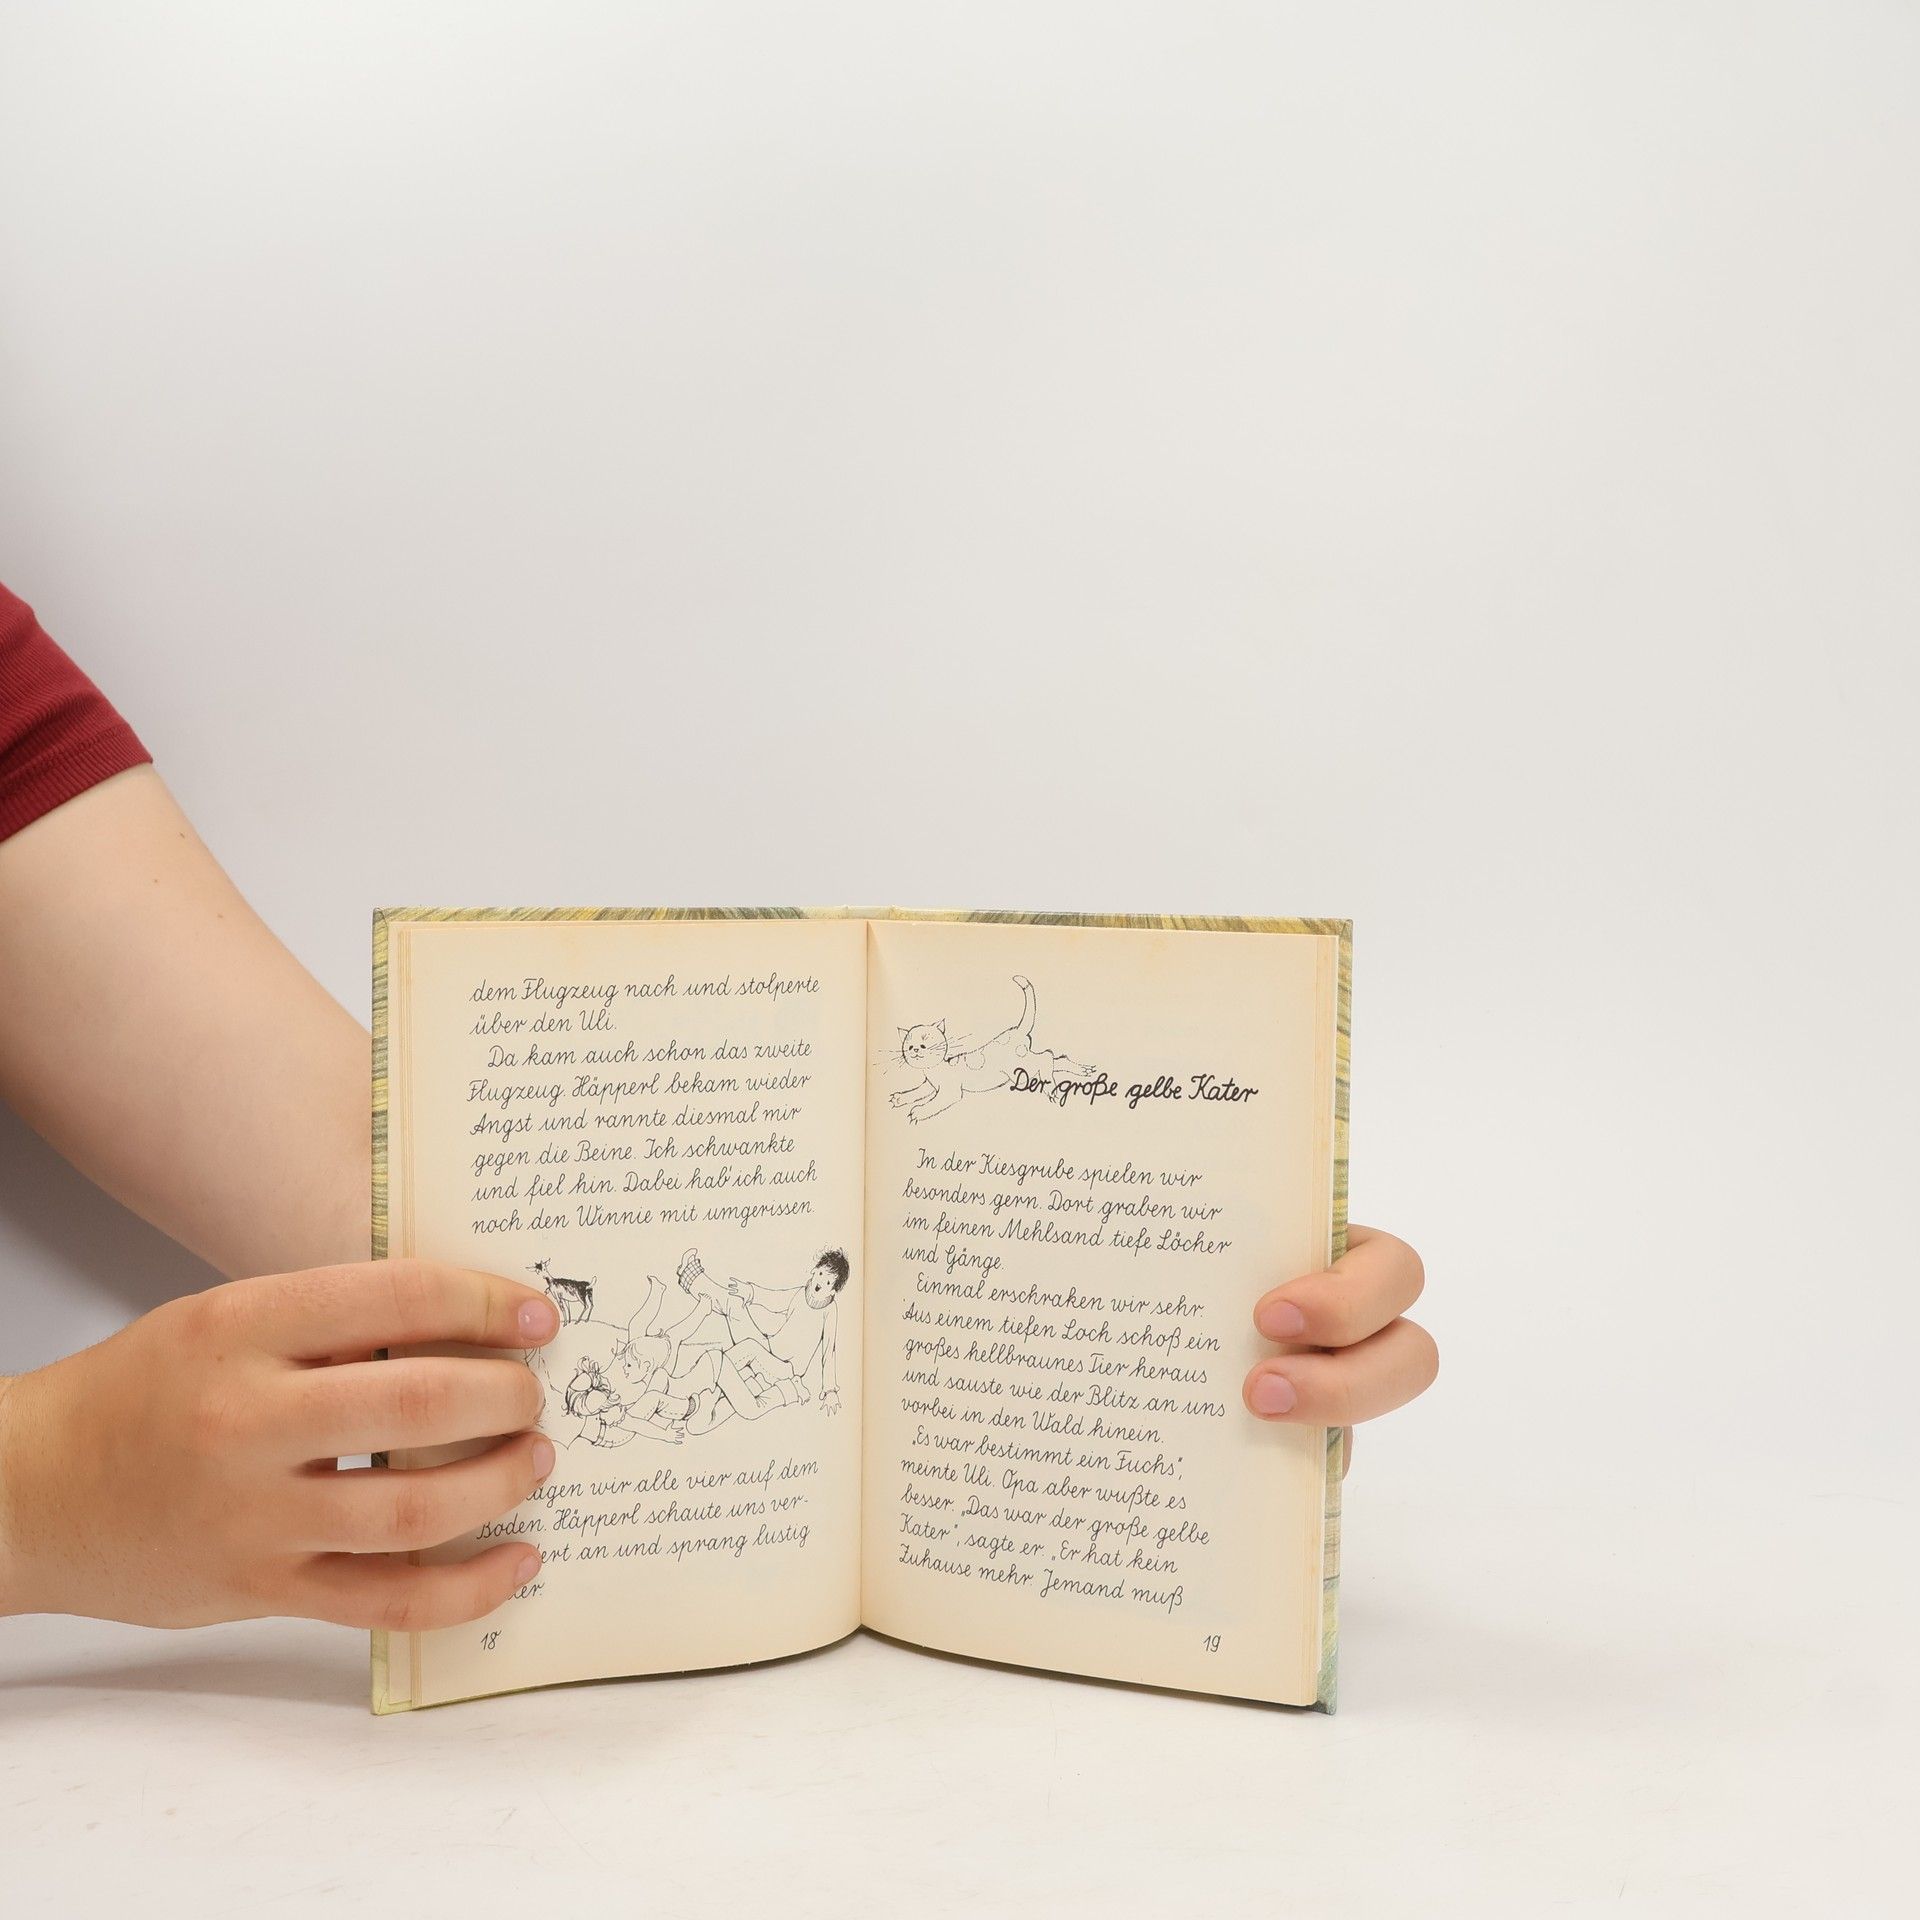 dem Flugzeug nach und stolperte
über den Uli.
Da kam auch schon das zweite
Flugzeug. Häpperl bekam wieder
Angst und rannte diesmal mir
gegen die Beine. Ich schwankte
und fiel hin. Dabei hab' ich auch
noch den Winnie mit umgerissen.
wir alle vier auf dem
Boden. Häpperl schaute uns ver-
an und sprang lustig
18
Der große gelbe Kater
In der Kiesgrube spielen wir
besonders gern. Dort graben wir
im feinen Mehlsand tiefe Löcher
und Gänge.
Einmal erschraken wir sehr.
Aus einem tiefen Loch schoß ein
großes hellbraunes Tier heraus
und sauste wie der Blitz an uns
vorbei in den Wald hinein.
„Es war bestimmt ein Fuchs“,
meinte Uli. Opa aber wußte es
besser. „Das war der große gelbe
Kater“, sagte er. „Er hat kein
Zuhause mehr. Jemand muß
19